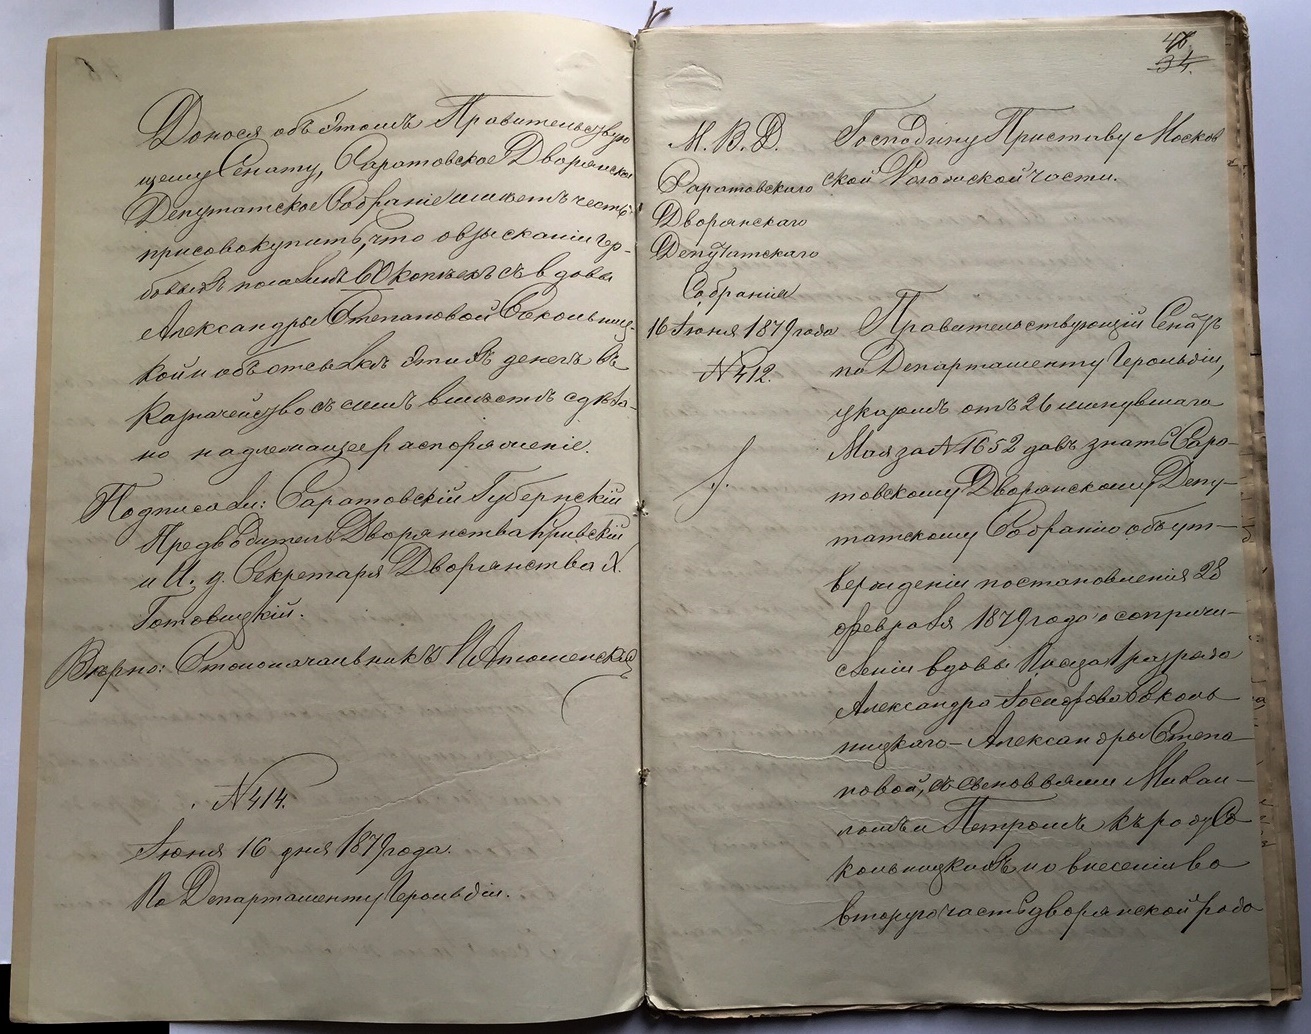 Донося объ этомъ Правительствую-
щему Сенату, Саратовское Дворянское
Депутатское Собраніе имѣетъ честь
присовокупить, что о взысканіи гер-
бовыхъ пошлинъ 60 копѣекъ съ вдовы
Александры Степановой Сокольниц-
кой и объ отсылкѣ этихъ денегъ въ
Казначейство съ симъ вмѣстѣ сдѣла-
но надлежащее распоряженіе.
Подписали: Саратовскій Губернскій
Предводитель Дворянства Кривскій
и И. д. Секретаря Дворянства Х.
Готовицкій.
Вѣрно: Столоначальникъ
№ 414.
Іюня 16 дня 1879 года.
По Департаменту Герольдіи.
48
34.
М. В. Д.
Саратовскаго
Дворянскаго
Депутатскаго
Собранія
16 Іюня 1879 года
№ 412.
Господину Приставу Москов
ской Рогожской части.
Правительствующій Сенатъ
по Департаменту Герольдіи,
указомъ отъ 26 минувшаго
Мая за № 1652 далъ знать Сара-
товскому Дворянскому Депу-
татскому Собранію объ ут-
вержденіи постановленія 28
февраля 1879 года о сопричи-
сленіи вдовы
Александра Іосифова Соколь
ницкаго - Александры Степа-
новой, съ сыновьями Михаи-
ломъ и Петромъ къ роду Со
кольницкихъ и о внесеніи во
вторую часть дворянской родо